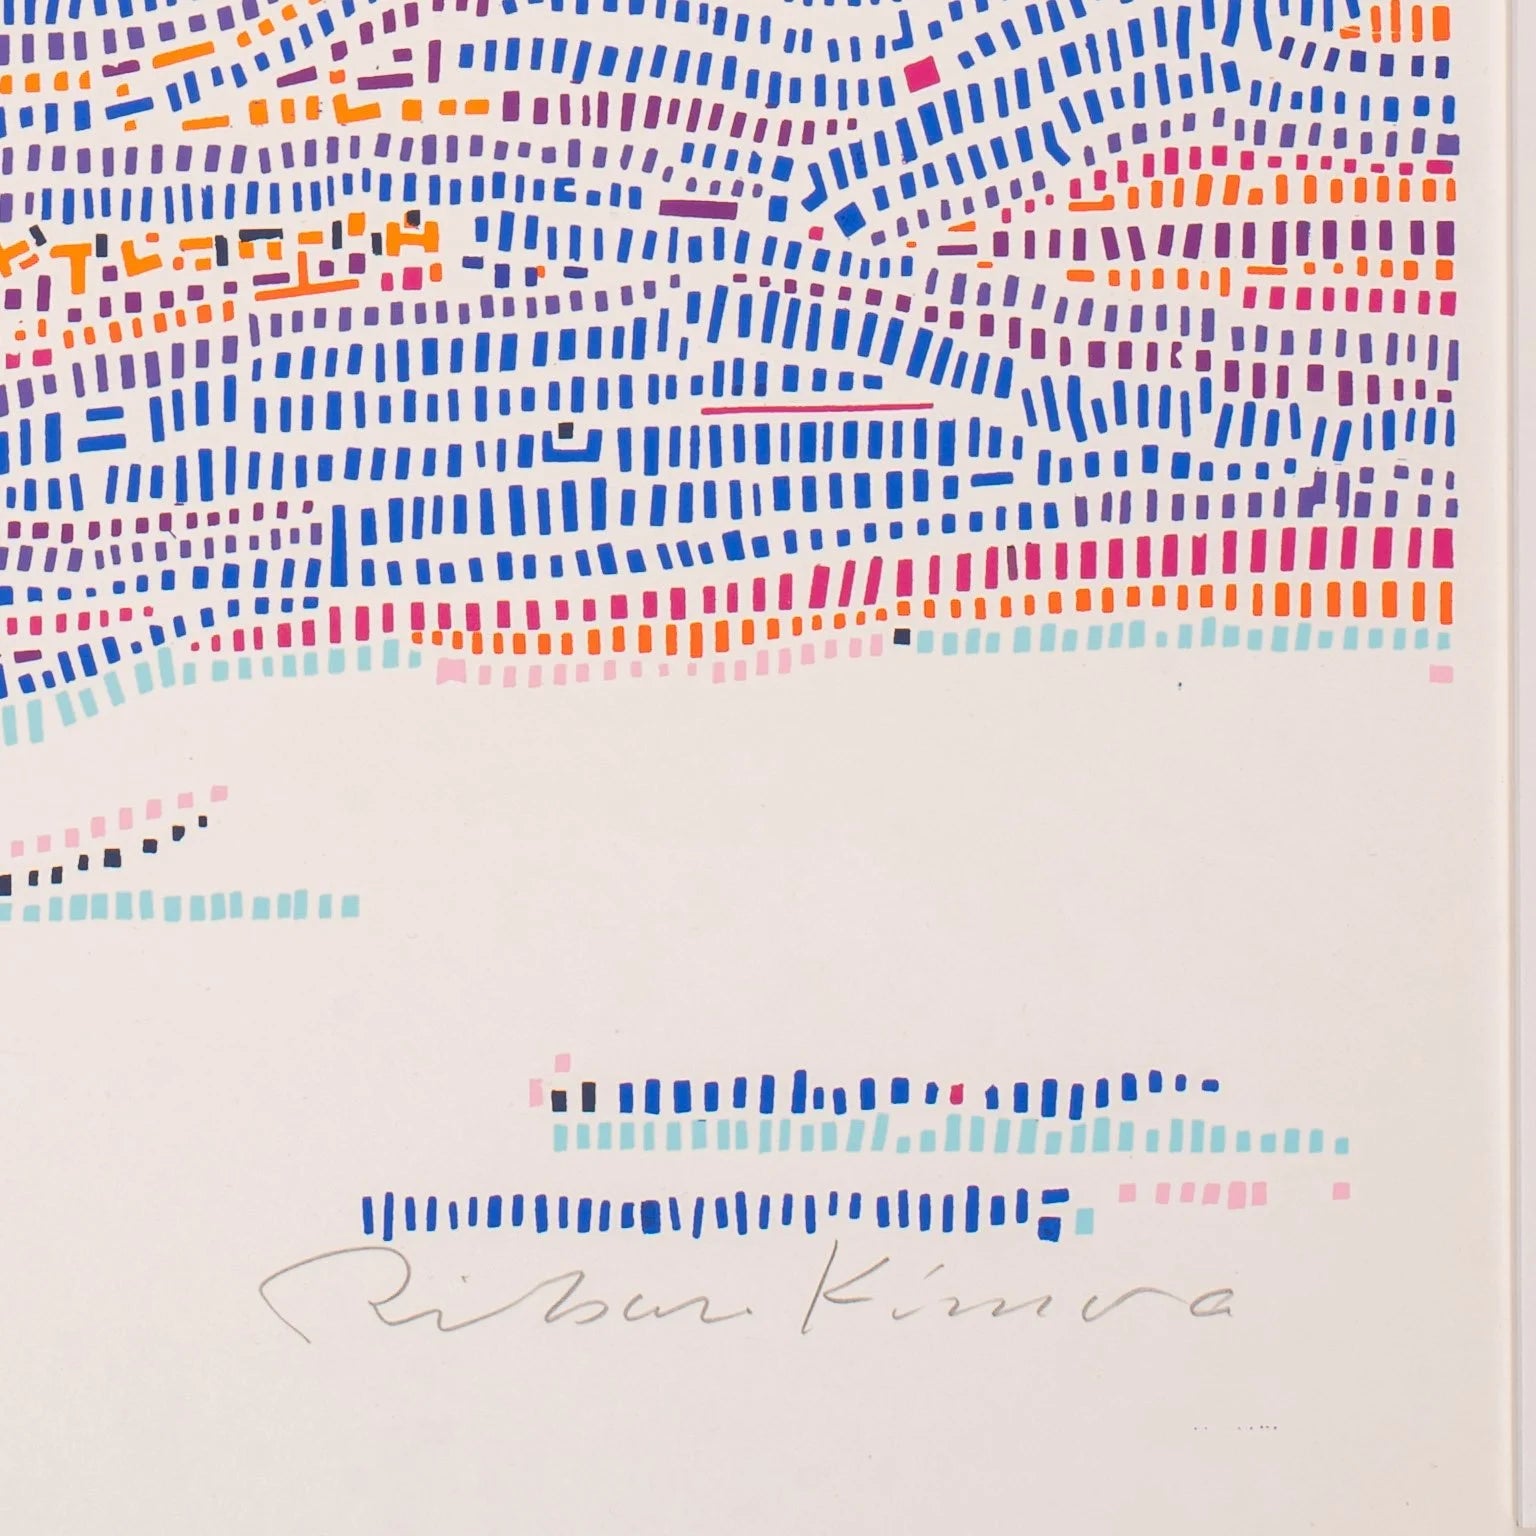 Risaburo Kimura